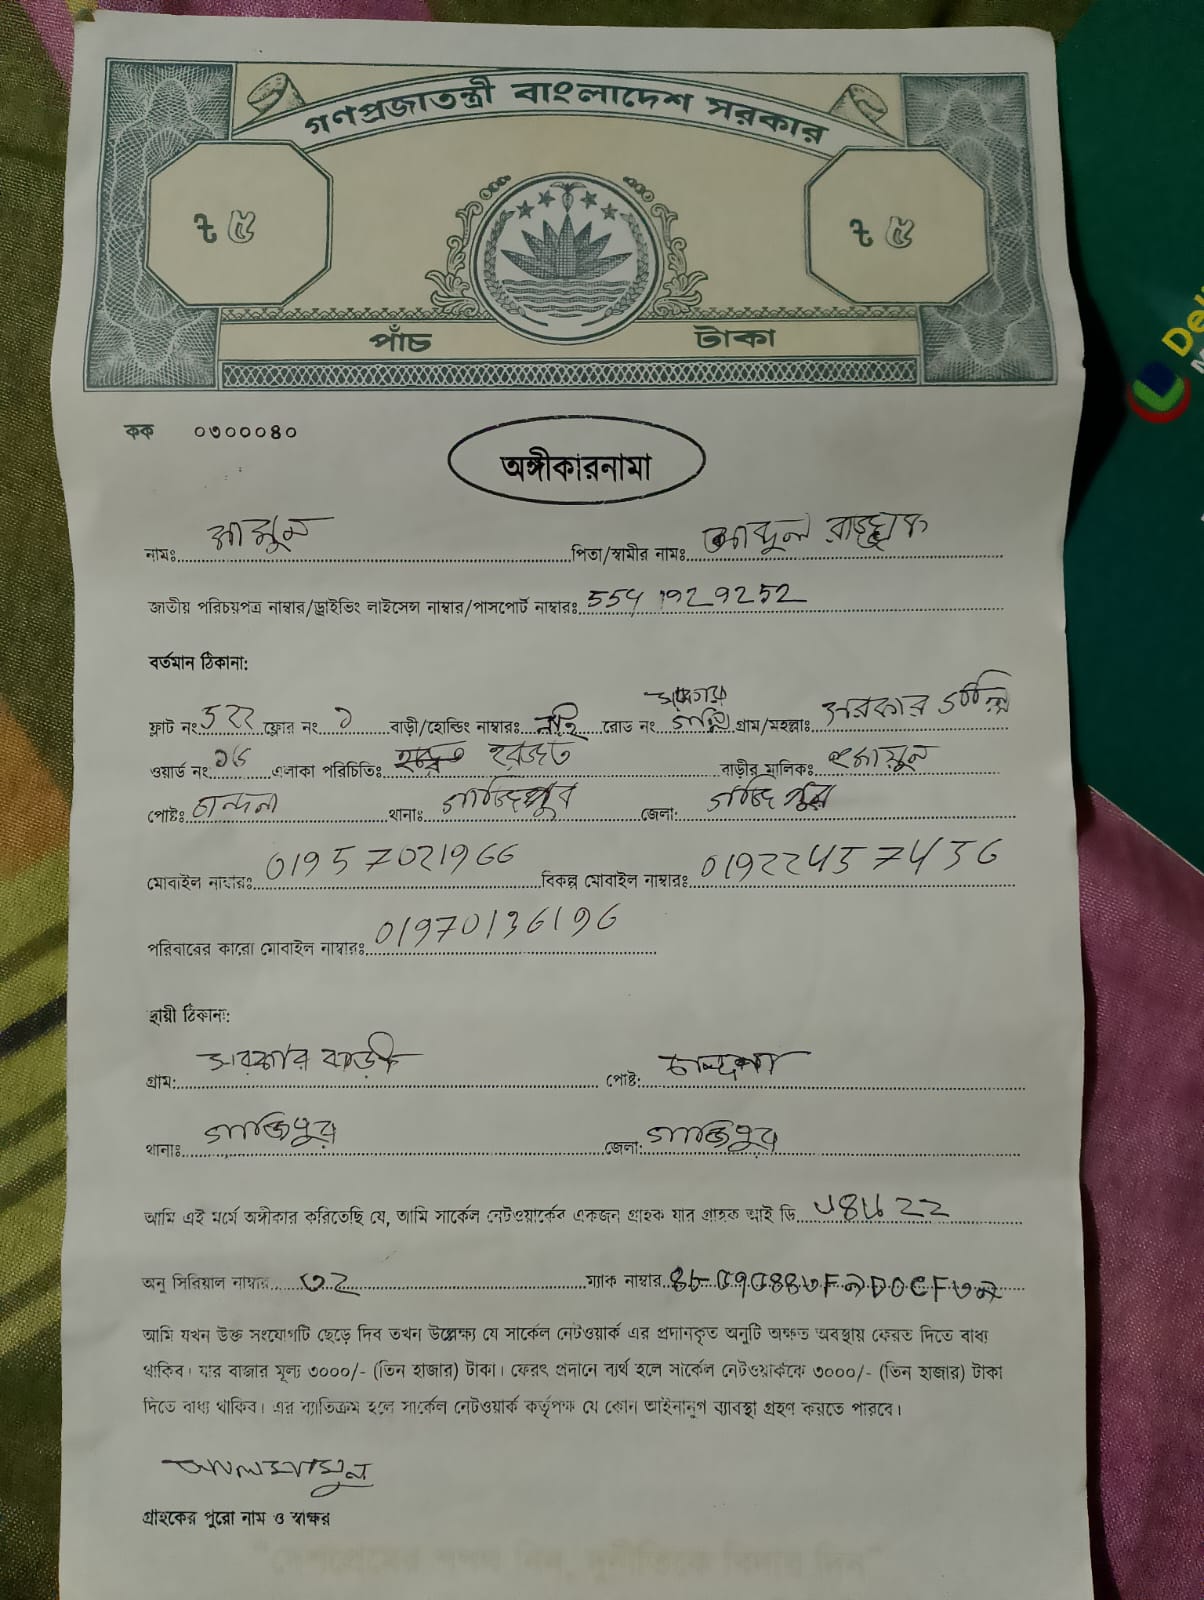 গণপ্রজাতন্ত্রী বাংলাদেশ সরকার
৳ ৫ ৳ ৫
পাঁচ টাকা
কক ০৩০০০৪০
অঙ্গীকারনামা
নামঃ মামুন পিতা/স্বামীর নামঃ আব্দুল রাজ্জাক
জাতীয় পরিচয়পত্র নাম্বার/ড্রাইভিং লাইসেন্স নাম্বার/পাসপোর্ট নাম্বারঃ
বর্তমান ঠিকানা:
ফ্লাট নং ফ্লোর নং ১ বাড়ী/হোল্ডিং নাম্বারঃ নাই রোড নং গ্রাম/মহল্লাঃ সরকার
ওয়ার্ড নং ১৬ এলাকা পরিচিতিঃ বাড়ীর মালিকঃ
পোষ্টঃ চান্দনা থানাঃ গাজিপুর জেলা: গাজিপুর
মোবাইল নাম্বারঃ 01957021966 বিকল্প মোবাইল নাম্বারঃ
পরিবারের কারো মোবাইল নাম্বারঃ 01970136196
স্থায়ী ঠিকানা:
গ্রাম: সরকার বাড়ী পোষ্ট: চান্দনা
থানাঃ গাজিপুর জেলা: গাজিপুর
আমি এই মর্মে অঙ্গীকার করিতেছি যে, আমি সার্কেল নেটওয়ার্কের একজন গ্রাহক যার গ্রাহক আই ডি
অনু সিরিয়াল নাম্বার ম্যাক নাম্বার
আমি যখন উক্ত সংযোগটি ছেড়ে দিব তখন উল্লেক্ষ্য যে সার্কেল নেটওয়ার্ক এর প্রদানকৃত অনুটি অক্ষত অবস্থায় ফেরত দিতে বাধ্য
থাকিব। যার বাজার মূল্য ৩০০০/- (তিন হাজার) টাকা। ফেরৎ প্রদানে ব্যর্থ হলে সার্কেল নেটওয়ার্ককে ৩০০০/- (তিন হাজার) টাকা
দিতে বাধ্য থাকিব। এর ব্যাতিক্রম হলে সার্কেল নেটওয়ার্ক কর্তৃপক্ষ যে কোন আইনানুগ ব্যাবস্থা গ্রহণ করতে পারবে।
আলমামুন
গ্রাহকের পুরো নাম ও স্বাক্ষর